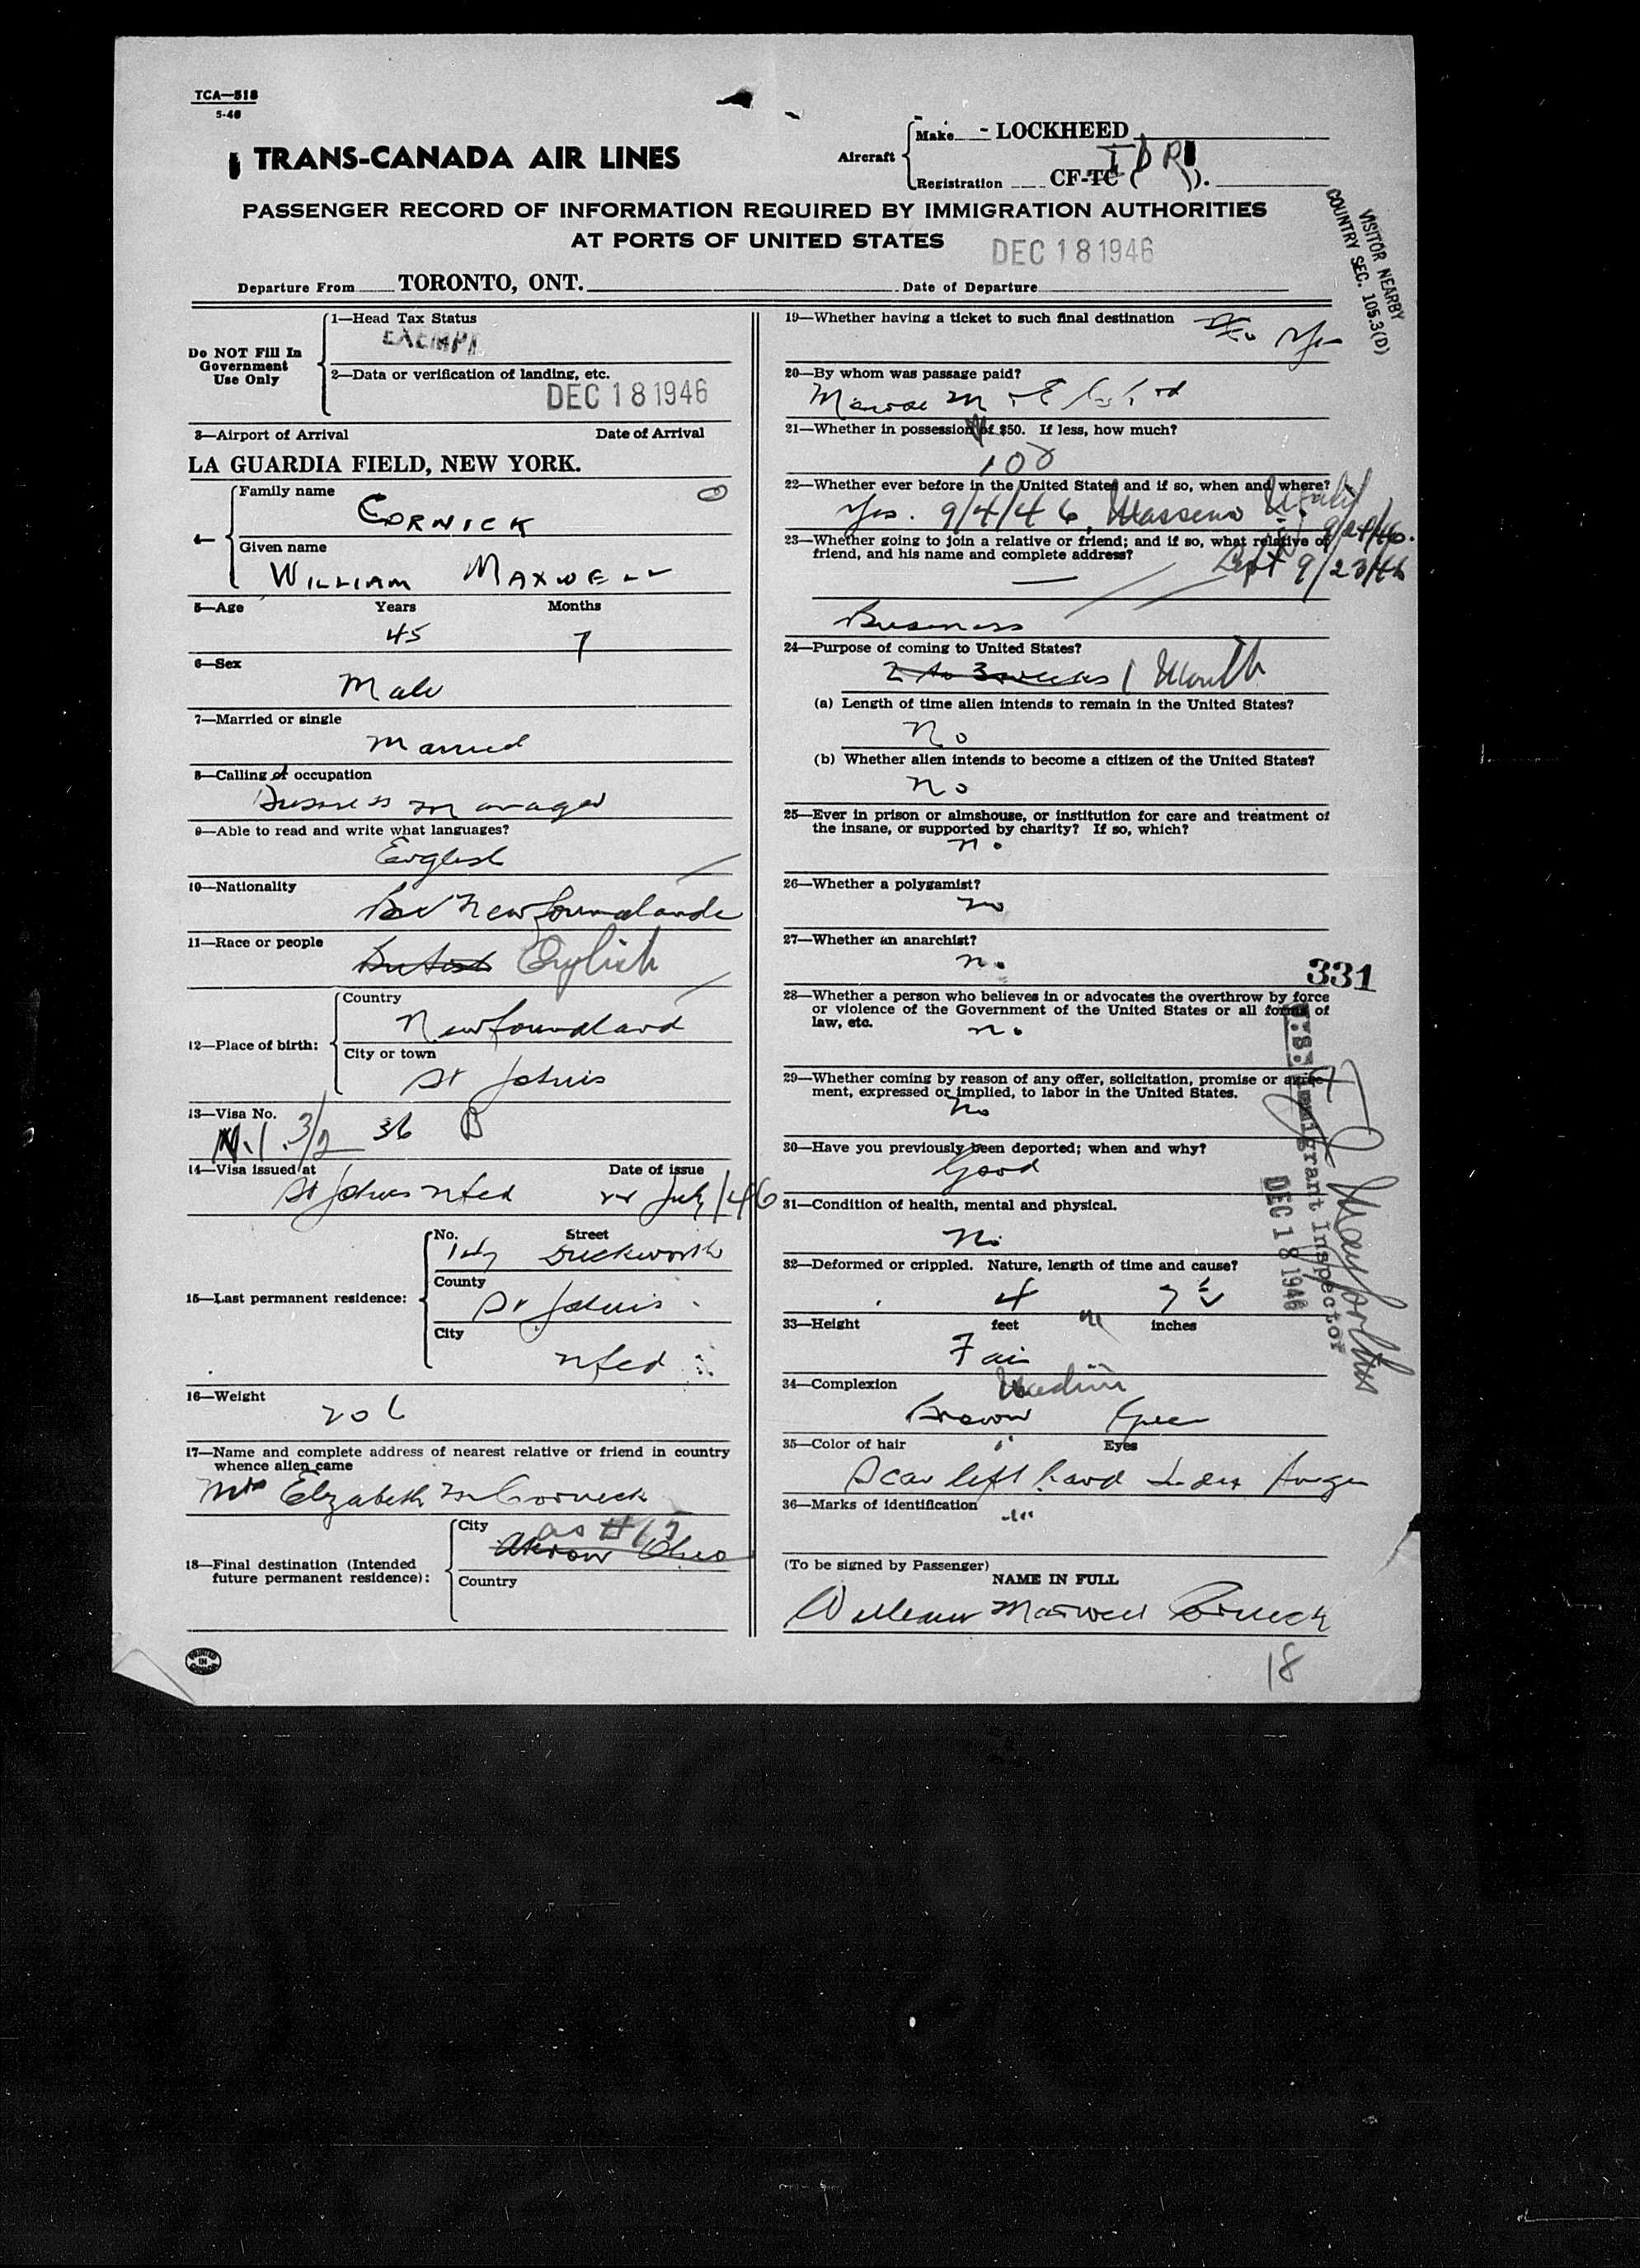 TCA—518
5-46
TRANS-CANADA AIR LINES
Aircraft
Make - LOCKHEED
Registration CF-TC ( ).
PASSENGER RECORD OF INFORMATION REQUIRED BY IMMIGRATION AUTHORITIES
AT PORTS OF UNITED STATES
DEC 18 1946
VISITOR NEARBY
COUNTRY SEC. 105.3(D)
Departure From TORONTO, ONT. Date of Departure
Do NOT Fill In
Government
Use Only
1—Head Tax Status
EXEMPT
2—Data or verification of landing, etc.
DEC 18 1946
3—Airport of Arrival Date of Arrival
LA GUARDIA FIELD, NEW YORK.
4—
Family name
CORNICK
Given name
WILLIAM MAXWELL
5—Age Years Months
45 7
6—Sex
Male
7—Married or single
Married
8—Calling or occupation
Business Manager
9—Able to read and write what languages?
English
10—Nationality
Newfoundlande
11—Race or people
British English
12—Place of birth:
Country
Newfoundland
City or town
St Johns
13—Visa No.
36 B
14—Visa issued at Date of issue
St Johns Nfld July/46
15—Last permanent residence:
No. Street
Duckworth
County
St Johns
City
Nfld
16—Weight
206
17—Name and complete address of nearest relative or friend in country
whence alien came
Mrs Elizabeth M Cornick
18—Final destination (Intended
future permanent residence):
City
as #15
Akron Ohio
Country
PRINTED
IN
CANADA
19—Whether having a ticket to such final destination
Yes
20—By whom was passage paid?
21—Whether in possession of $50. If less, how much?
100
22—Whether ever before in the United States and if so, when and where?
Yes. 9/4/46, Massena
9/24/46.
23—Whether going to join a relative or friend; and if so, what relative or
friend, and his name and complete address?
9/23/46
Business
24—Purpose of coming to United States?
2 to 3 weeks 1 Month
(a) Length of time alien intends to remain in the United States?
No
(b) Whether alien intends to become a citizen of the United States?
No
25—Ever in prison or almshouse, or institution for care and treatment of
the insane, or supported by charity? If so, which?
No
26—Whether a polygamist?
No
27—Whether an anarchist?
No
331
28—Whether a person who believes in or advocates the overthrow by force
or violence of the Government of the United States or all forms of
law, etc.
No
29—Whether coming by reason of any offer, solicitation, promise or agree-
ment, expressed or implied, to labor in the United States.
No
30—Have you previously been deported; when and why?
Good
31—Condition of health, mental and physical.
No
32—Deformed or crippled. Nature, length of time and cause?
U.S. Immigrant Inspector
DEC 18 1946
33—Height feet inches
Fair
34—Complexion
Medium
Brown Green
35—Color of hair Eyes
Scar left hand Index finger
36—Marks of identification
(To be signed by Passenger)
NAME IN FULL
William Maxwell Cornick
18